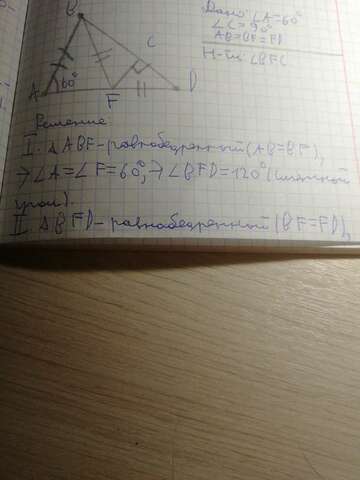 Дано: ∠A=60°
∠C=90°
AB=BF=FD
Н-ти: ∠BFC
B
C
A
60°
F
D
Решение
I. ΔABF-равнобедренный(AB=BF),
→∠A=∠F=60°,→∠BFD=120°(смежной
угол).
II. ΔBFD-равнобедренный(BF=FD),